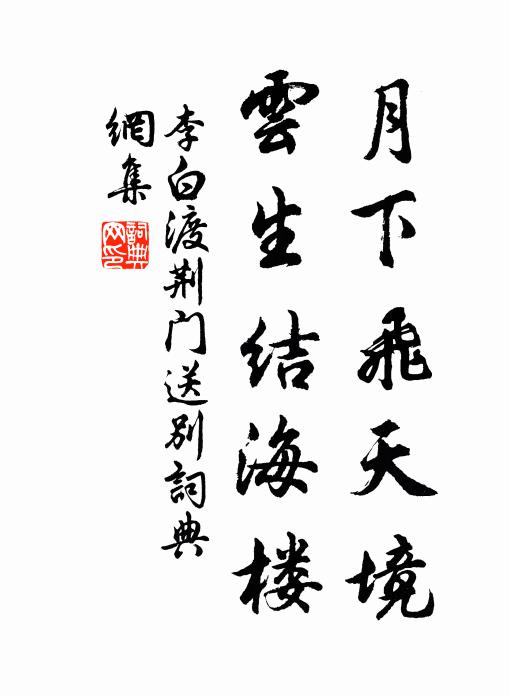 月下飛天境
雲生结海楼
李白渡荆门送别詞典
網集
詞典
网印